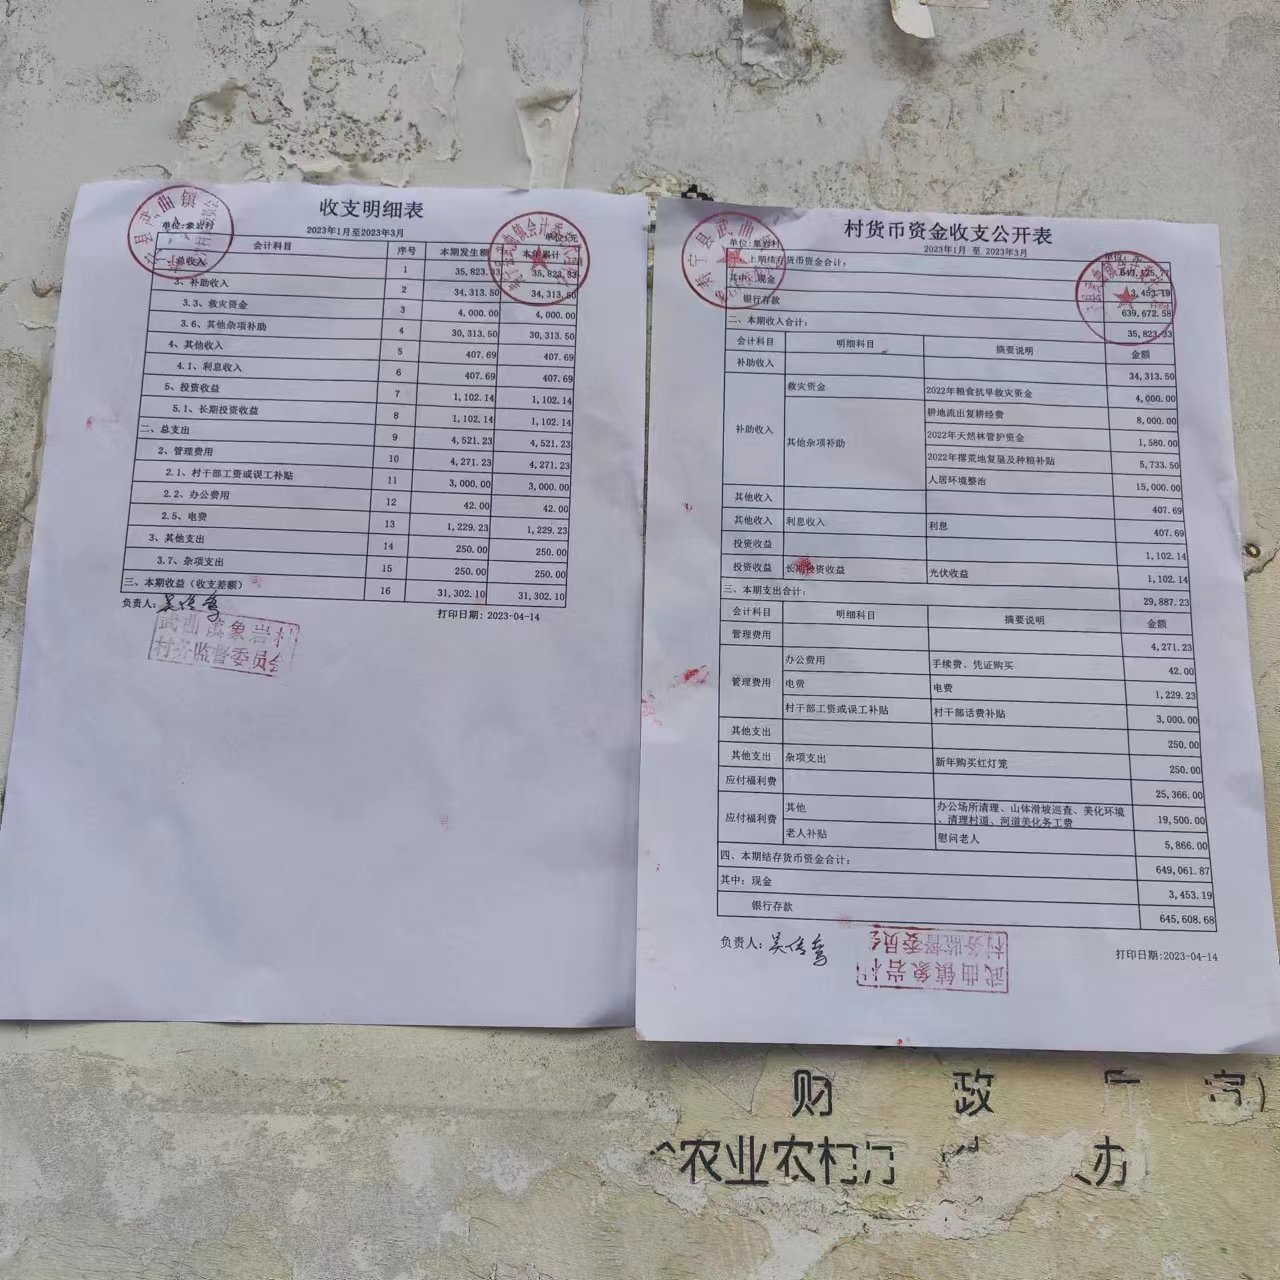 收支明细表
2023年1月至2023年3月
单位:象岩村 单位:元
会计科目 序号 本期发生额 本年累计
一、总收入 1 35,823.33 35,823.33
3、补助收入 2 34,313.50 34,313.50
3.3、救灾资金 3 4,000.00 4,000.00
3.6、其他杂项补助 4 30,313.50 30,313.50
4、其他收入 5 407.69 407.69
4.1、利息收入 6 407.69 407.69
5、投资收益 7 1,102.14 1,102.14
5.1、长期投资收益 8 1,102.14 1,102.14
二、总支出 9 4,521.23 4,521.23
2、管理费用 10 4,271.23 4,271.23
2.1、村干部工资或误工补贴 11 3,000.00 3,000.00
2.2、办公费用 12 42.00 42.00
2.5、电费 13 1,229.23 1,229.23
3、其他支出 14 250.00 250.00
3.7、杂项支出 15 250.00 250.00
三、本期收益（收支差额） 16 31,302.10 31,302.10
负责人: 打印日期: 2023-04-14
武曲镇象岩村
村务监督委员会
村货币资金收支公开表
2023年1月 至 2023年3月
单位:象岩村
一、上期结存货币资金合计: 643,125.77
其中:现金 3,453.19
银行存款 639,672.58
二、本期收入合计: 35,823.33
会计科目 明细科目 摘要说明 金额
补助收入 34,313.50
补助收入 救灾资金 2022年粮食抗旱救灾资金 4,000.00
其他杂项补助 耕地流出复耕经费 8,000.00
2022年天然林管护资金 1,580.00
2022年撂荒地复垦及种粮补贴 5,733.50
人居环境整治 15,000.00
其他收入 407.69
其他收入 利息收入 利息 407.69
投资收益 1,102.14
投资收益 长期投资收益 光伏收益 1,102.14
三、本期支出合计: 29,887.23
会计科目 明细科目 摘要说明 金额
管理费用 4,271.23
管理费用 办公费用 手续费、凭证购买 42.00
电费 电费 1,229.23
村干部工资或误工补贴 村干部话费补贴 3,000.00
其他支出 250.00
其他支出 杂项支出 新年购买红灯笼 250.00
应付福利费 25,366.00
应付福利费 其他 办公场所清理、山体滑坡巡查、美化环境
、清理村道、河道美化务工费 19,500.00
老人补贴 慰问老人 5,866.00
四、本期结存货币资金合计: 649,061.87
其中: 现金 3,453.19
银行存款 645,608.68
负责人: 打印日期:2023-04-14
武曲镇象岩村
村务监督委员会
财 政 厅
农业农村厅 办